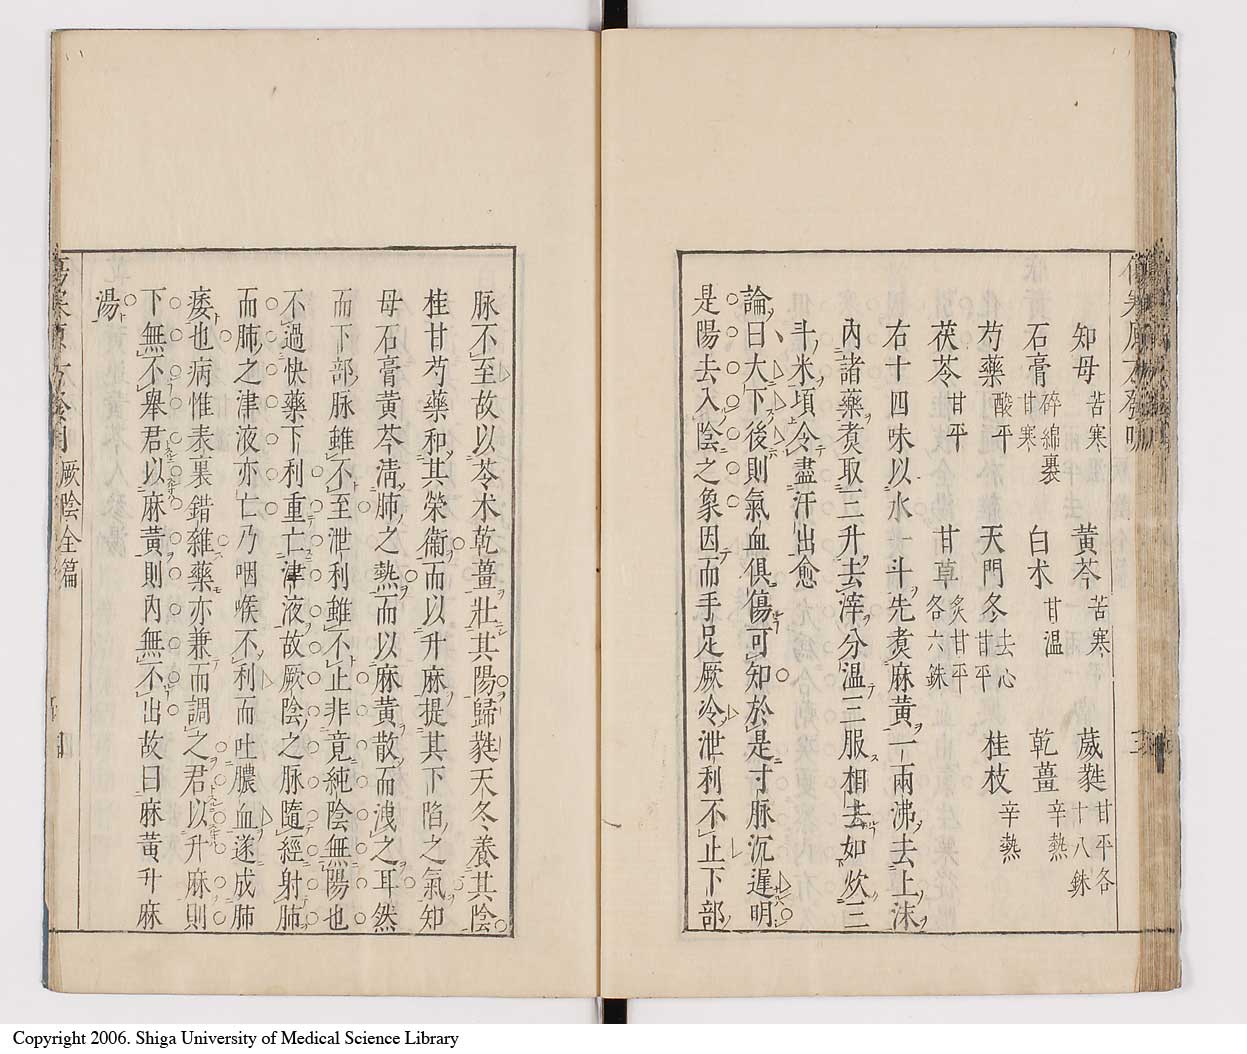 知母 苦寒 黃芩 苦寒 葳蕤 甘平各十八銖
石膏 碎綿裹甘寒 白朮 甘温 乾薑 辛熱
芍藥 酸平 天門冬 去心甘平 桂枝 辛熱
茯苓 甘平 甘草 炙甘平各六銖
右十四味以水一斗先煑麻黃一兩沸去上沫
內諸藥煑取三升去滓分温三服相去如炊三
斗米頃令盡汗出愈
論曰大下後則氣血俱傷可知於是寸脉沉遲明
是陽去入陰之象因而手足厥冷泄利不止下部
脉不至故以苓朮乾薑壯其陽歸蕤天冬養其陰
桂甘芍藥和其榮衞而以升麻提其下陷之氣知
母石膏黃芩淸肺之熱而以麻黃散而洩之耳然
而下部脉雖不至泄利雖不止非竟純陰無陽也
不過快藥下利重亡津液故厥陰之脉隨經射肺
而肺之津液亦亡乃咽喉不利而吐膿血遂成肺
痿也病惟表裏錯雜藥亦兼而調之君以升麻則
下無不舉君以麻黃則內無不出故曰麻黃升麻
湯
厥陰全篇